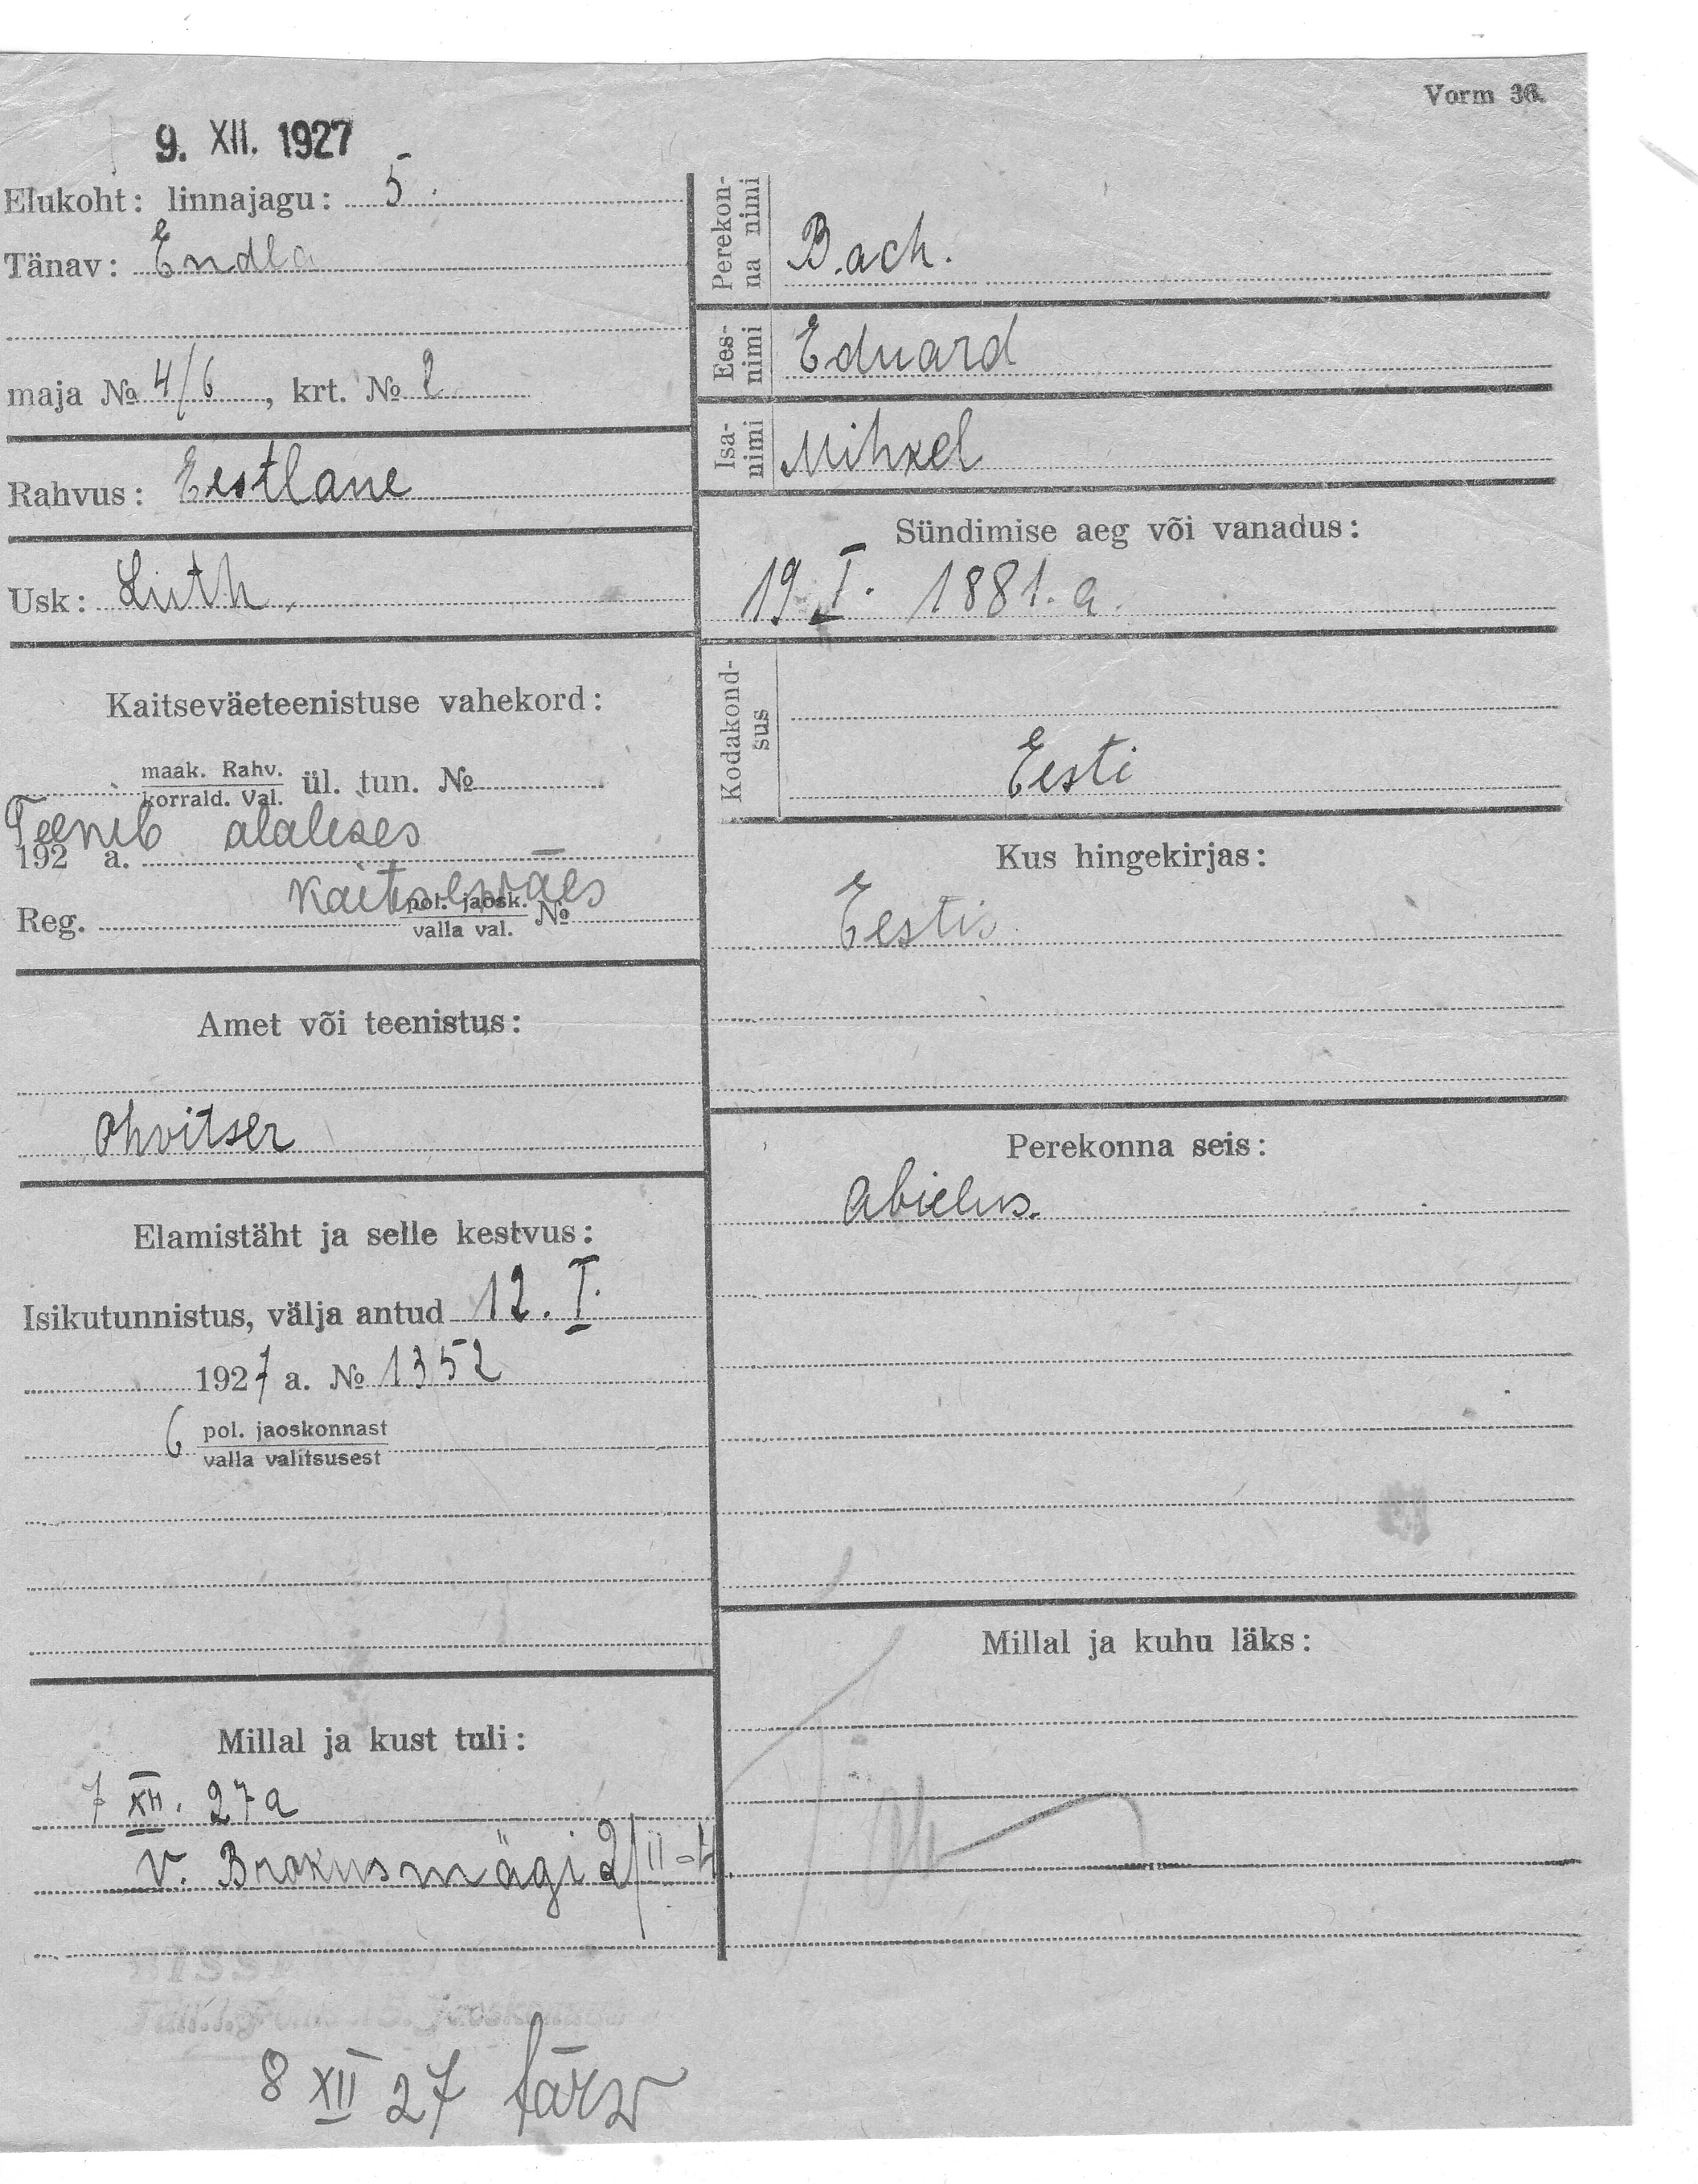 Vorm 36.
9. XII. 1927
Elukoht: linnajagu: 5.
Tänav: Endla
maja № 4/6, krt. № 2
Rahvus: Eestlane
Usk: Luth.
Kaitseväeteenistuse vahekord:
maak. Rahv.
korrald. Val. ül. tun. №
Teenib alalises
192 a.
kaitseväes
Reg. pol. jaosk. №
valla val.
Amet või teenistus:
Ohvitser
Elamistäht ja selle kestvus:
Isikutunnistus, välja antud 12. I.
1927 a. № 1352
6 pol. jaoskonnast
valla valitsusest
Millal ja kust tuli:
7 XII. 27 a
v. Brokusmägi 2/II-4
8 XII 27
Perekon-
na nimi
Bach.
Ees-
nimi
Eduard
Isa-
nimi
Mihkel
Sündimise aeg või vanadus:
19 I. 1881. a.
Kodakond-
sus
Eesti
Kus hingekirjas:
Eestis
Perekonna seis:
abielus.
Millal ja kuhu läks: